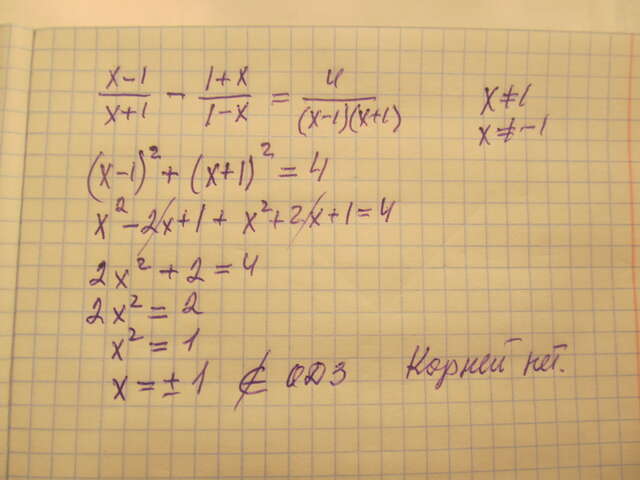 x-1/x+1 - 1+x/1-x = 4/(x-1)(x+1) x≠1
x≠-1
(x-1)² + (x+1)² = 4
x² - 2x + 1 + x² + 2x + 1 = 4
2x² + 2 = 4
2x² = 2
x² = 1
x = ±1 ∉ ОДЗ Корней нет.